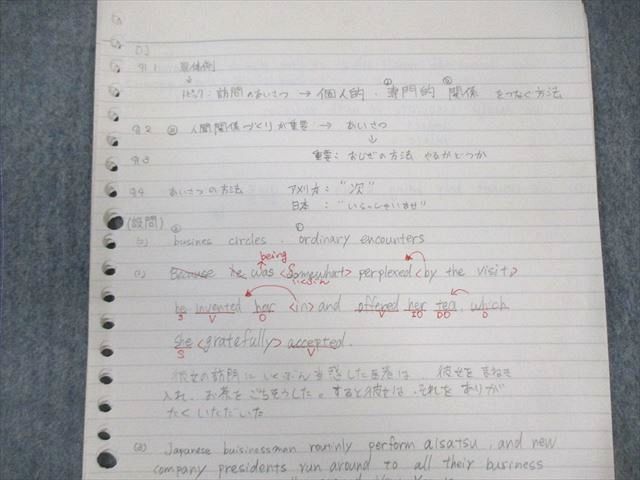 訪問のあいさつ → 個人的・専門的 関係 をつなぐ方法
人間関係づくりが重要 → あいさつ
重要: おじぎの方法
あいさつの方法 アメリカ: "次"
日本: "いらっしゃいませ"
(設問)
busines circles. ordinary encounters
being
Because he was <Somewhat> perplexed <by the visit>
いくぶん
he invented her <in> and offered her tea, which
S V O V IO DO O
she <gratefully> accepted.
S V
彼女の訪問にいくぶん当惑した
彼女をまねき
入れ、お茶をごちそうした。すると彼女は、それをありが
たくいただいた
(2) Japanese buisinessman routinly perform aisatsu, and new
company presidents run around to all their business